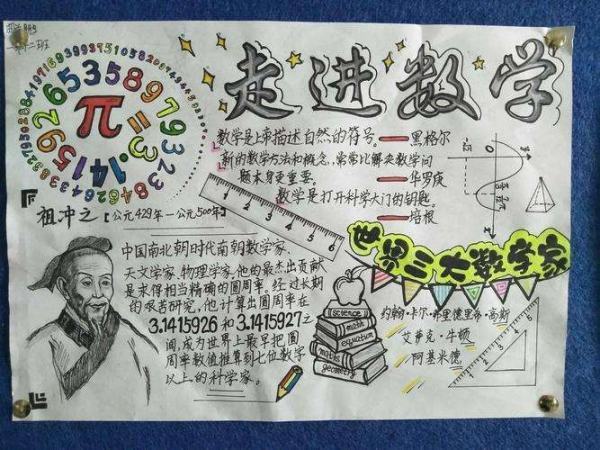 走进数学
π=3.1415926535897932
数学是上帝描述自然的符号。——黑格尔
新的数学方法和概念,常常比解决数学问
题本身更重要。——华罗庚
数学是打开科学大门的钥匙。
——培根
祖冲之【公元429年—公元500年】
中国南北朝时代南朝数学家、
天文学家、物理学家,他的最杰出贡献
是求得相当精确的圆周率。经过长期
的艰苦研究,他计算出圆周率在
3.1415926和3.1415927之
间,成为世界上最早把圆
周率数值推算到七位数字
以上的科学家。
0 1 2 3 4 5 6
世界三大数学家
约翰·卡尔·弗里德里希·高斯
艾萨克·牛顿
阿基米德
science
books
math
equation
maths
geometry